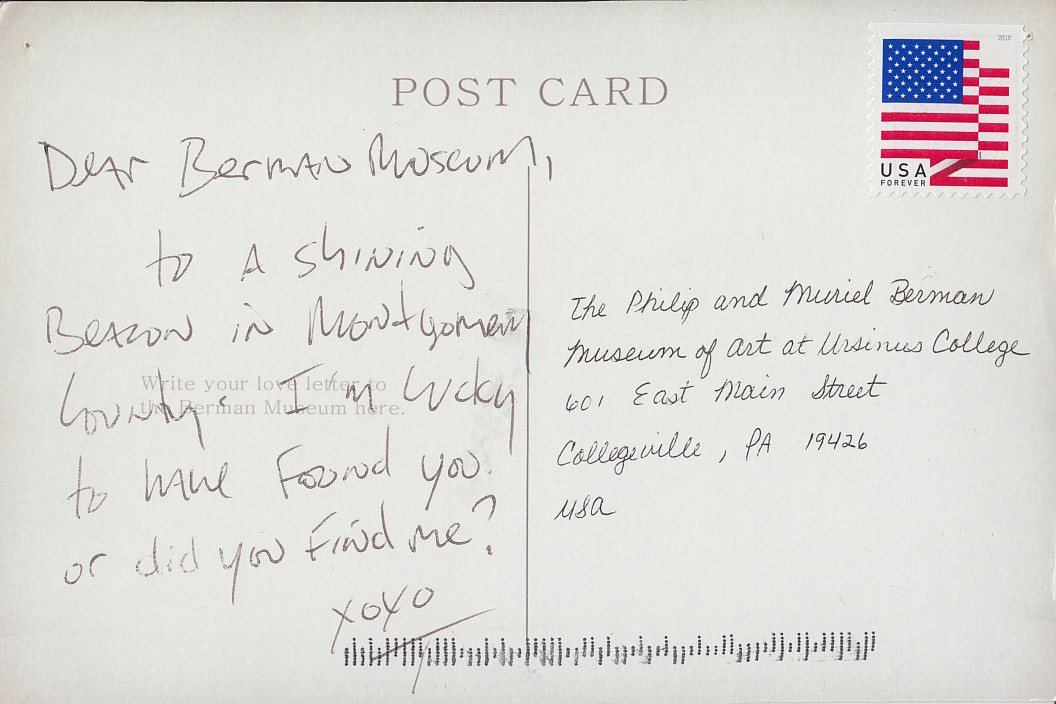 POST CARD
2018
USA
FOREVER
Dear Berman Museum,
to a shining
Beacon in Montgomery
County. I'm lucky
to have Found you.
or did you Find me?
xoxo
Write your love letter to
the Berman Museum here.
The Philip and Muriel Berman
Museum of Art at Ursinus College
601 East Main Street
Collegeville, PA 19426
USA